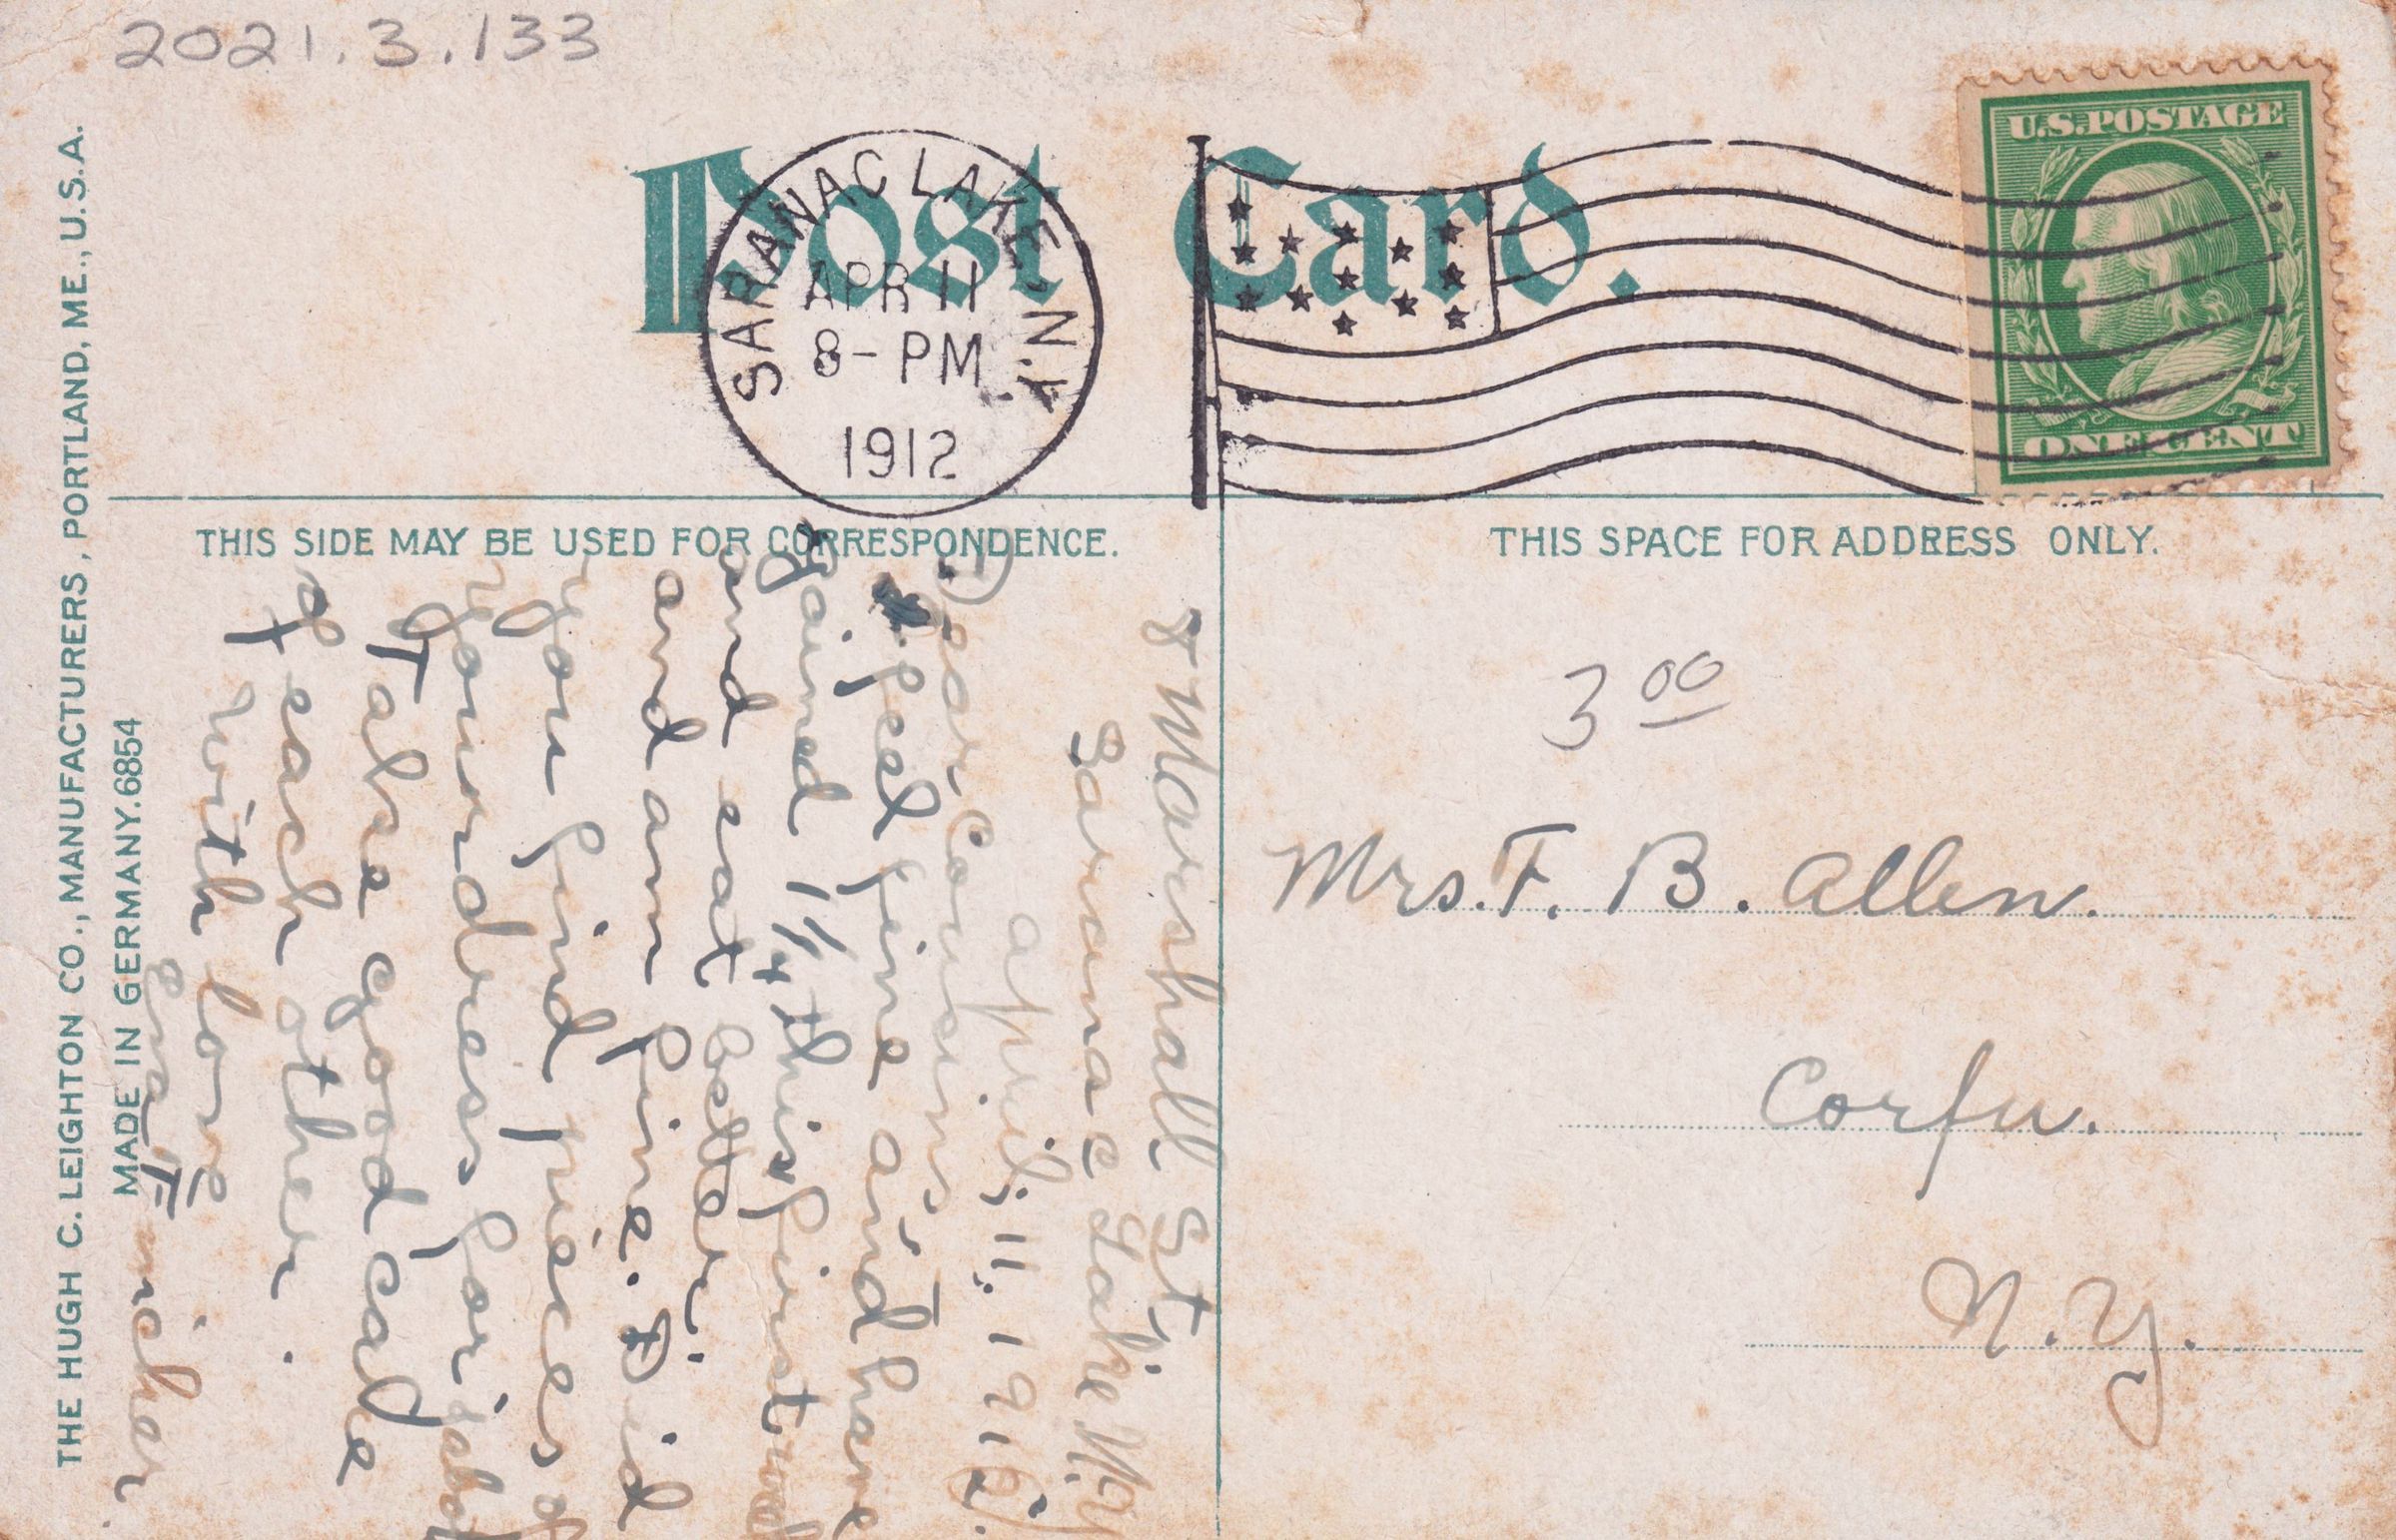 2021.3.133
Post Card.
SARANAC LAKE N.Y.
APR 11
8-PM
1912
U.S.POSTAGE
ONE CENT
THE HUGH C. LEIGHTON CO., MANUFACTURERS, PORTLAND, ME., U.S.A.
MADE IN GERMANY. 6854
THIS SIDE MAY BE USED FOR CORRESPONDENCE.
THIS SPACE FOR ADDRESS ONLY.
8 Marshall St.
Saranac Lake N.Y
April, 11, 1912.
Dear Cousins
I feel fine and have
gained 1 1/4 this first
and eat better
and am fine. Did
you find pieces of
your dress for
Take good care
of each other.
with love
3 00
Mrs. F. B. Allen.
Corfu.
N.Y.